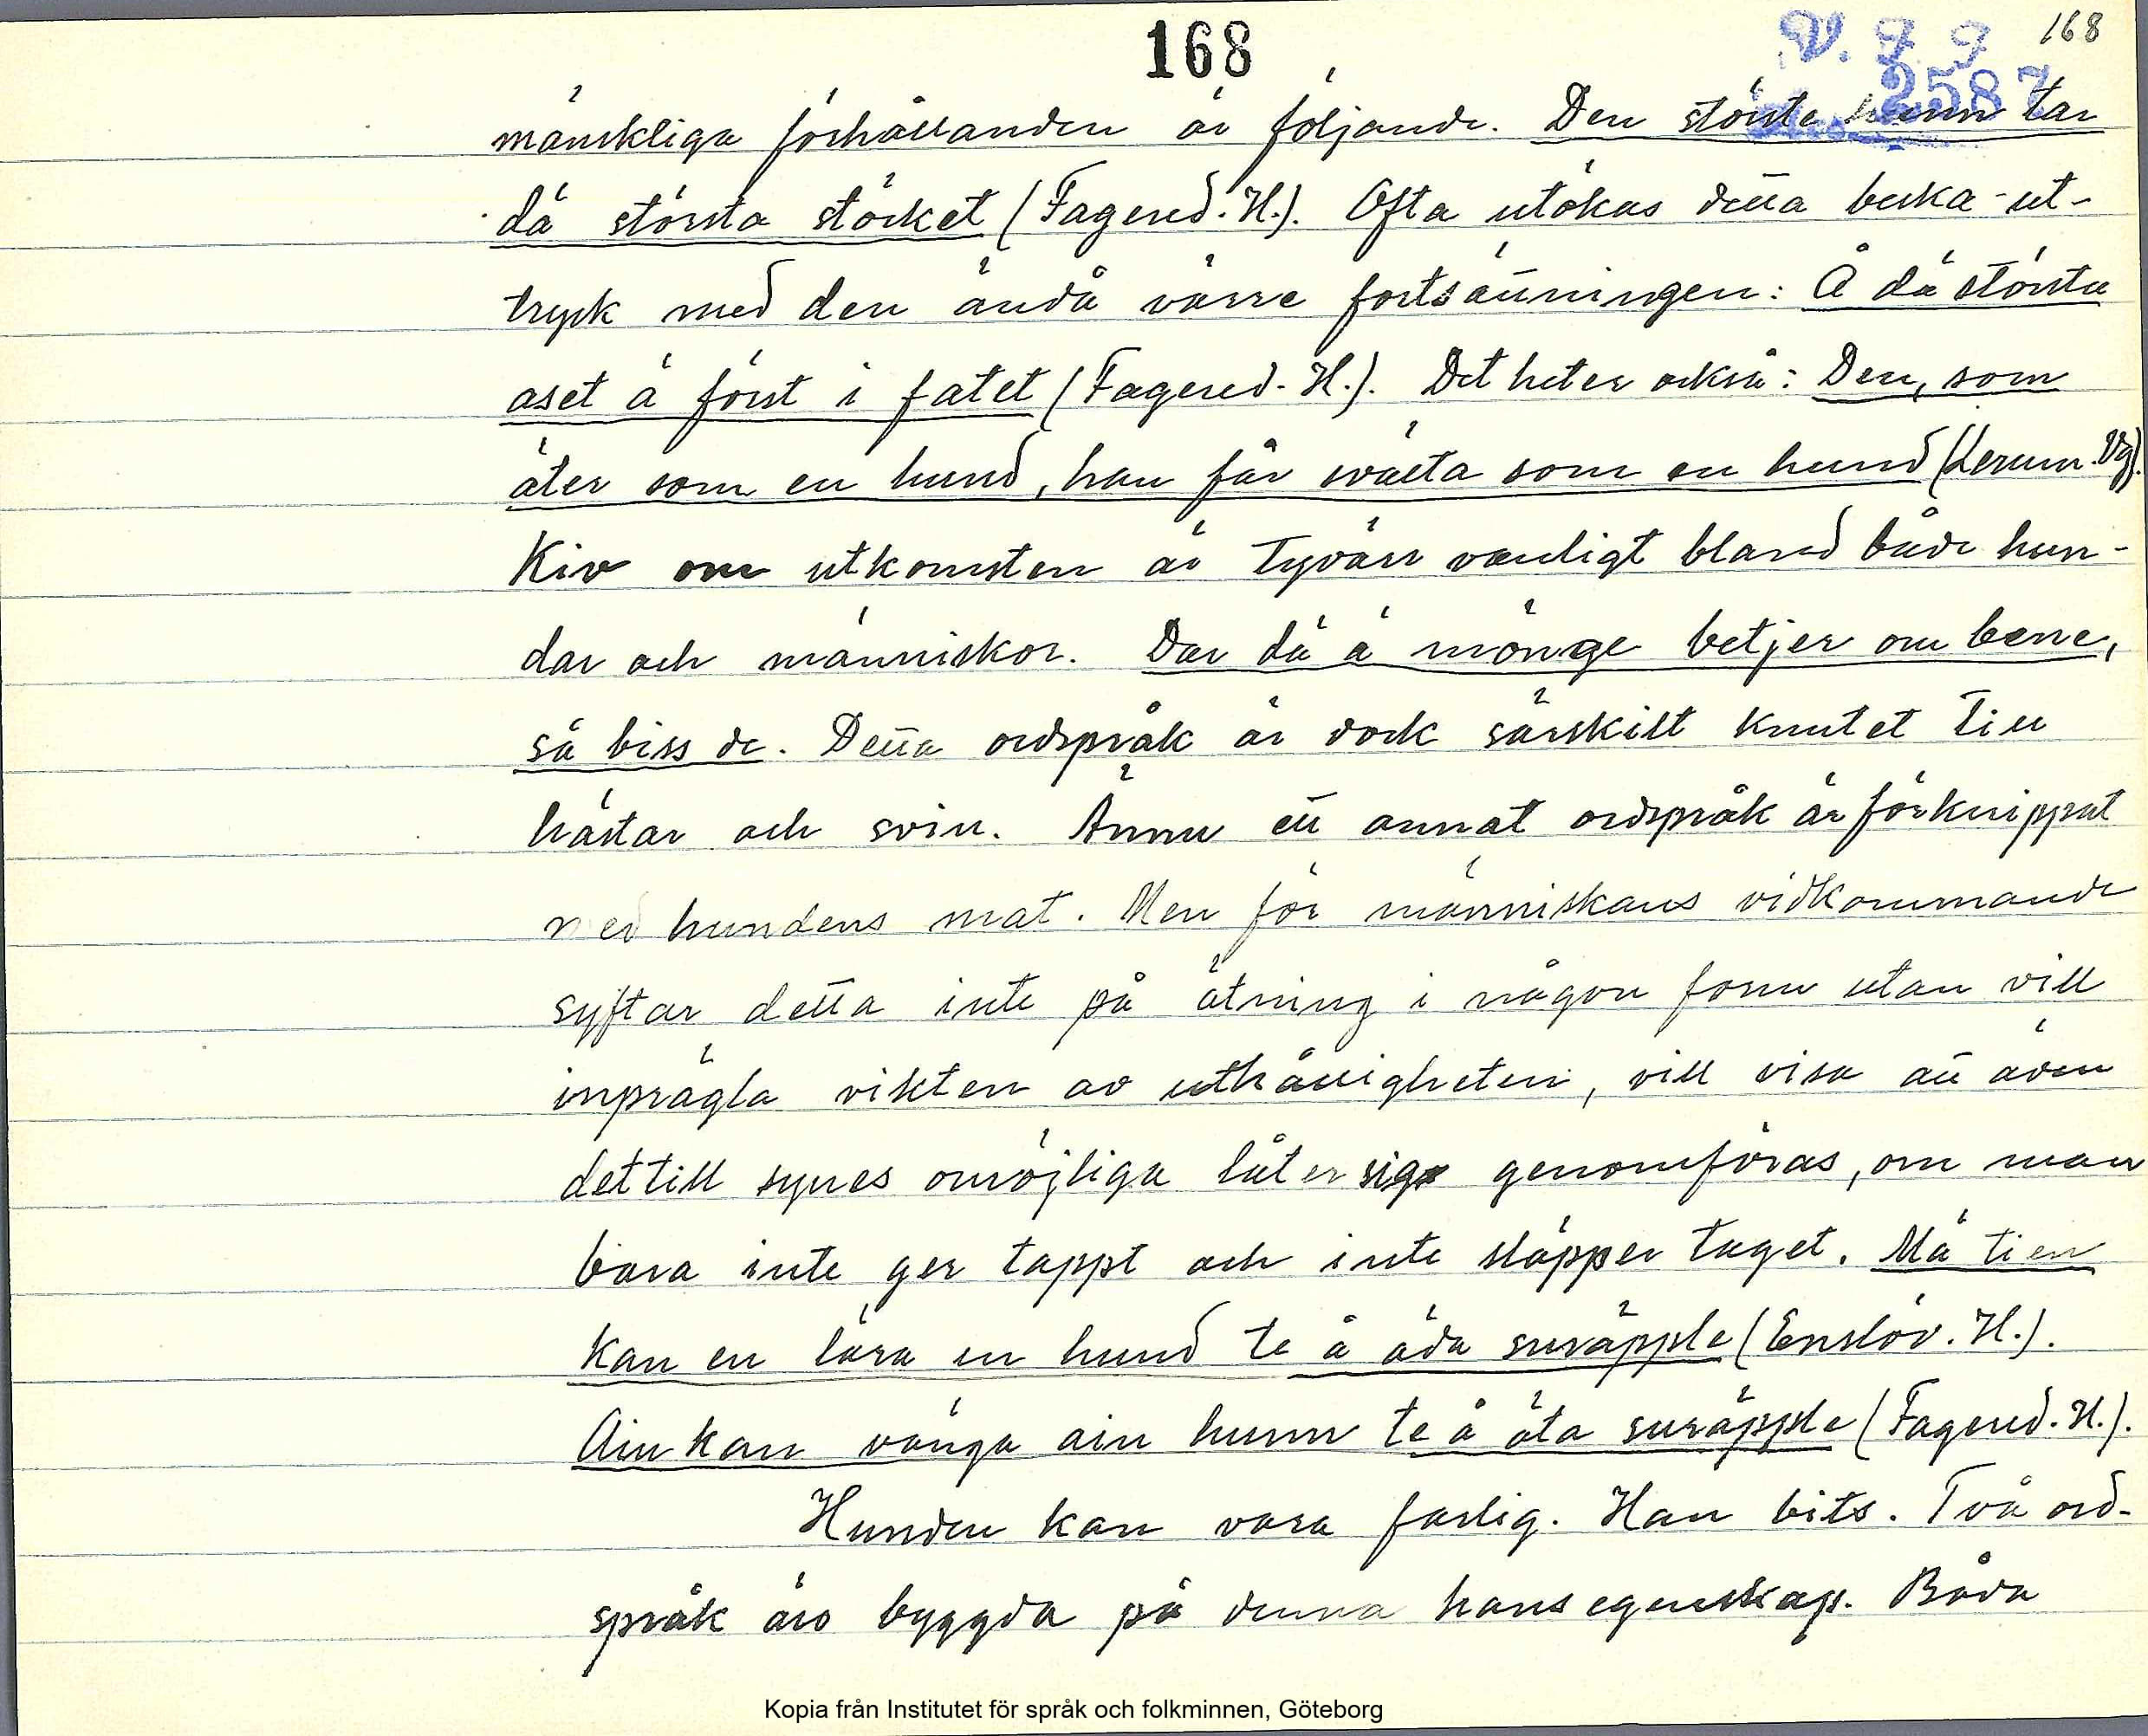 168
V. F. F. 168
2587
mänskliga förhållanden är följande. Den störste hunn tar
dä största stöcket (Fagered. H.). Ofta utökas detta beska ut-
tryck med den ändå värre fortsättningen: Å dä största
aset ä först i fatet (Fagered. H.). Det heter också: Den, som
äter som en hund, han får svälta som en hund (Lerum. Vg).
Kiv om utkomsten är tyvärr vanligt bland både hun-
dar och människor. Dar dä ä mönge betjer om bene,
så biss de. Detta ordspråk är dock särskilt knutet till
hästar och svin. Ännu ett annat ordspråk är förknippat
med hundens mat. Men för människans vidkommande
syftar detta inte på ätning i någon form utan vill
inprägla vikten av uthålligheten, vill visa att även
det till synes omöjliga låter sig genomföras, om man
bara inte ger tappt och inte släpper taget. Mä tien
kan en lära en hund te å äda suräpple (Enslöv. H.).
Ain kan vänga ain hunn te å äta suräpple (Fagered. H.).
Hunden kan vara farlig. Han bits. Två ord-
språk äro byggda på denna hans egenskap. Båda
Kopia från Institutet för språk och folkminnen, Göteborg